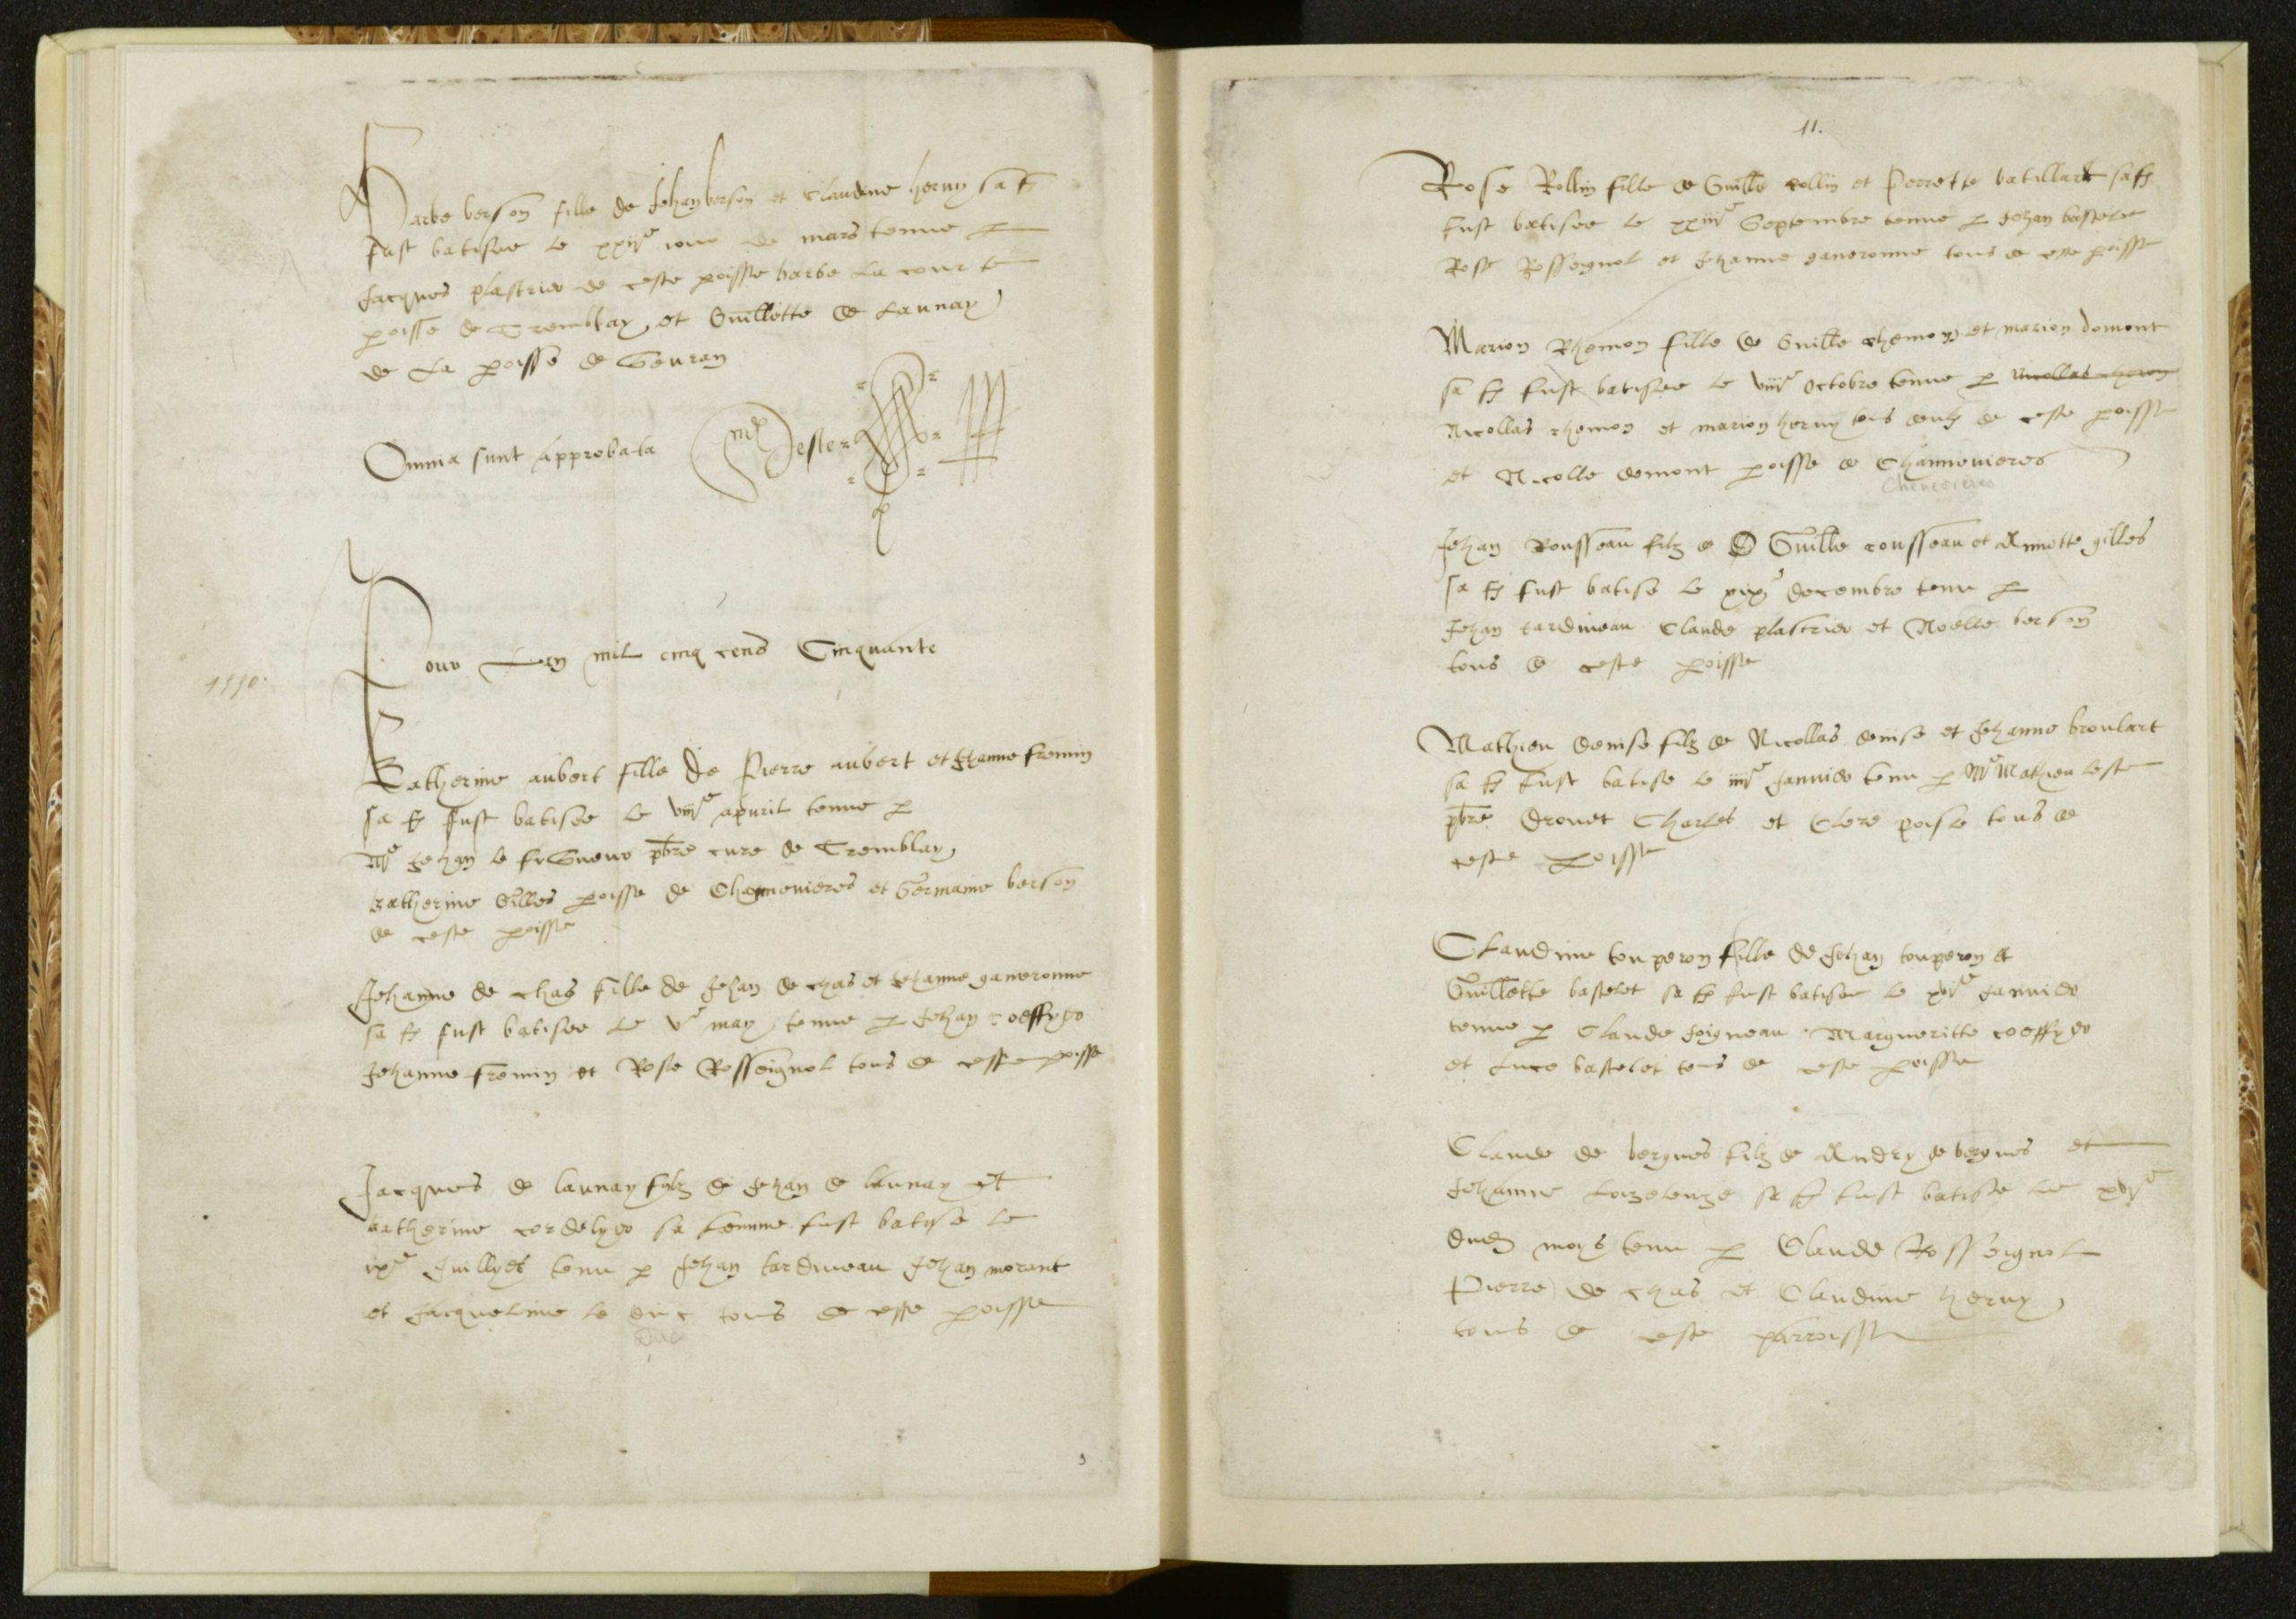 Barbe berson fille de Jehan berson et Claudine heruy sa f
fust batisee le xxiije iour de mars tenue p
Jacques plastrier de ceste poisse barbe La court
poisse de Tremblay et Guillette de Launay
de La poisse de Seuran
Omnia sunt Approbata M Leste
Pour Lan mil cinq cens Cinquante
1550.
Katherine aubert fille de Pierre aubert et Jehanne fremin
sa f fust batisee le viije apuril tenue p
Me Jehan le pbre cure de Tremblay
katherine Gilles poisse de Chennevieres et Germaine berson
de ceste poisse
Jehanne de chas fille de Jehan de chas et Jehanne ganeronne
sa f fust batisee le ve may tenue p Jehan coeffyer
Jehanne fremin et Rose Rosseignol tous de ceste poisse
Jacques de launay fylz de Jehan de launay et
katherine cordelyer sa femme fust batise le
ixe Juillyet tenu p Jehan tardiueau Jehan morant
et Jacqueline le duc tous de ceste poisse
Duc
11.
Rose Rollin fille de Guille rollin et Perrette batillart sa f
fust batisee le xxiiije Septembre tenue p Jehan bastelet
Rose Rosseignol et Jehanne ganeronne tous de ceste poisse
Marion Rhemon fille de Guille rhemon et marion domont
sa f fust batisee le viije Octobre tenue p Nicollas rhemon
Nicollas rhemon et marion heruy tous deulx de ceste poisse
et Nicolle domont poisse de Channeuieres
Chenevieres
Jehan Rousseau filz de Guille rousseau et Annette gilles
sa f fust batise le xixe decembre tenu p
Jehan tardiueau Claude plastrier et Noelle berson
tous de ceste poisse
Mathieu denise filz de Nicollas denise et Jehanne broulart
sa f fust batise le iiije Januier tenu p Me Mathieu leste
pbre Drouet Charles et Clere poisle tous de
ceste poisse
Claudine touperon fille de Jehan touperon et
Guillette bastelet sa f fust batisee le xvje Januier
tenue p Claude Joigneau Margueritte coeffyer
et Luce bastelet tous de ceste poisse
Claude de vergnes filz de Andry de vergnes et
Jehanne sa f fust batise le xvje
dud moys tenu p Claude Rosseignol
Pierre de chas et Claudine heruy
tous de ceste parroisse